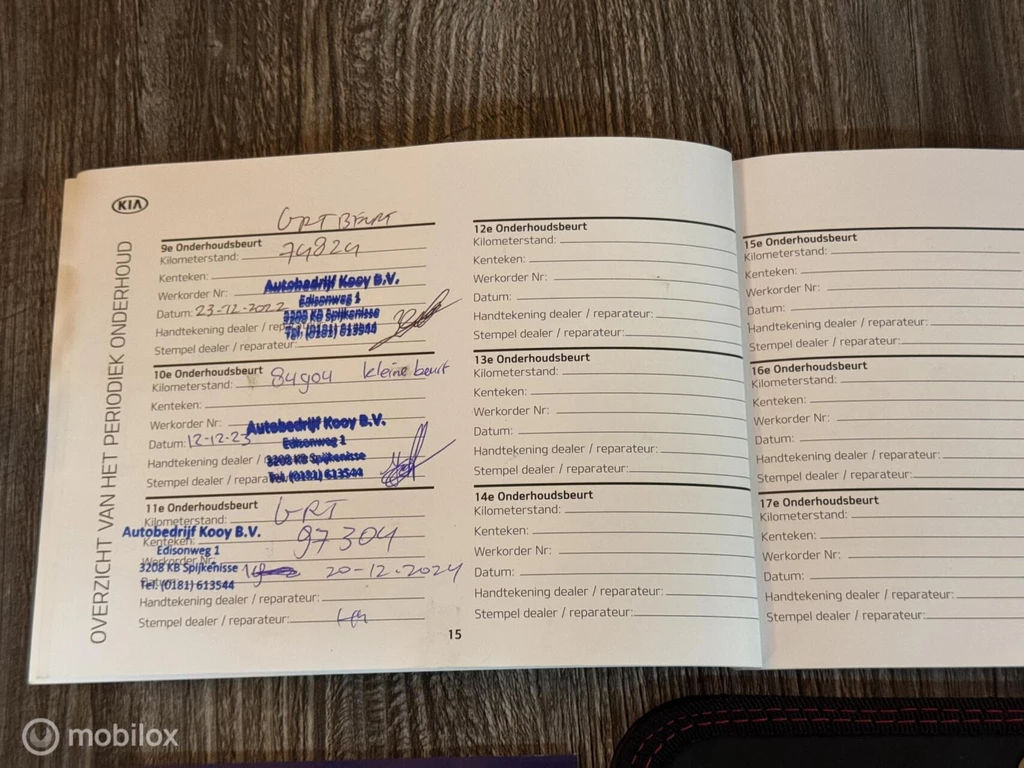 KIA
OVERZICHT VAN HET PERIODIEK ONDERHOUD
GRT BEURT
9e Onderhoudsbeurt
Kilometerstand: 74824
Kenteken:
Werkorder Nr:
Autobedrijf Kooy B.V.
Edisonweg 1
Datum: 23-12-2022
3208 KB Spijkenisse
Handtekening dealer / rep
Tel. (0181) 613544
Stempel dealer / reparateur:
10e Onderhoudsbeurt
Kilometerstand: 84904 kleine beurt
Kenteken:
Werkorder Nr:
Autobedrijf Kooy B.V.
Datum: 12-12-23
Edisonweg 1
Handtekening dealer /
3208 KB Spijkenisse
Stempel dealer / repara
Tel. (0181) 613544
11e Onderhoudsbeurt
GRT
Kilometerstand:
Autobedrijf Kooy B.V.
97304
Kenteken:
Edisonweg 1
Werkorder Nr:
3208 KB Spijkenisse
20-12-2024
Datum:
Tel. (0181) 613544
Handtekening dealer / reparateur:
Stempel dealer / reparateur:
15
12e Onderhoudsbeurt
Kilometerstand:
Kenteken:
Werkorder Nr:
Datum:
Handtekening dealer / reparateur:
Stempel dealer / reparateur:
13e Onderhoudsbeurt
Kilometerstand:
Kenteken:
Werkorder Nr:
Datum:
Handtekening dealer / reparateur:
Stempel dealer / reparateur:
14e Onderhoudsbeurt
Kilometerstand:
Kenteken:
Werkorder Nr:
Datum:
Handtekening dealer / reparateur:
Stempel dealer / reparateur:
15e Onderhoudsbeurt
Kilometerstand:
Kenteken:
Werkorder Nr:
Datum:
Handtekening dealer / reparateur:
Stempel dealer / reparateur:
16e Onderhoudsbeurt
Kilometerstand:
Kenteken:
Werkorder Nr:
Datum:
Handtekening dealer / reparateur:
Stempel dealer / reparateur:
17e Onderhoudsbeurt
Kilometerstand:
Kenteken:
Werkorder Nr:
Datum:
Handtekening dealer / reparateur:
Stempel dealer / reparateur:
mobilox